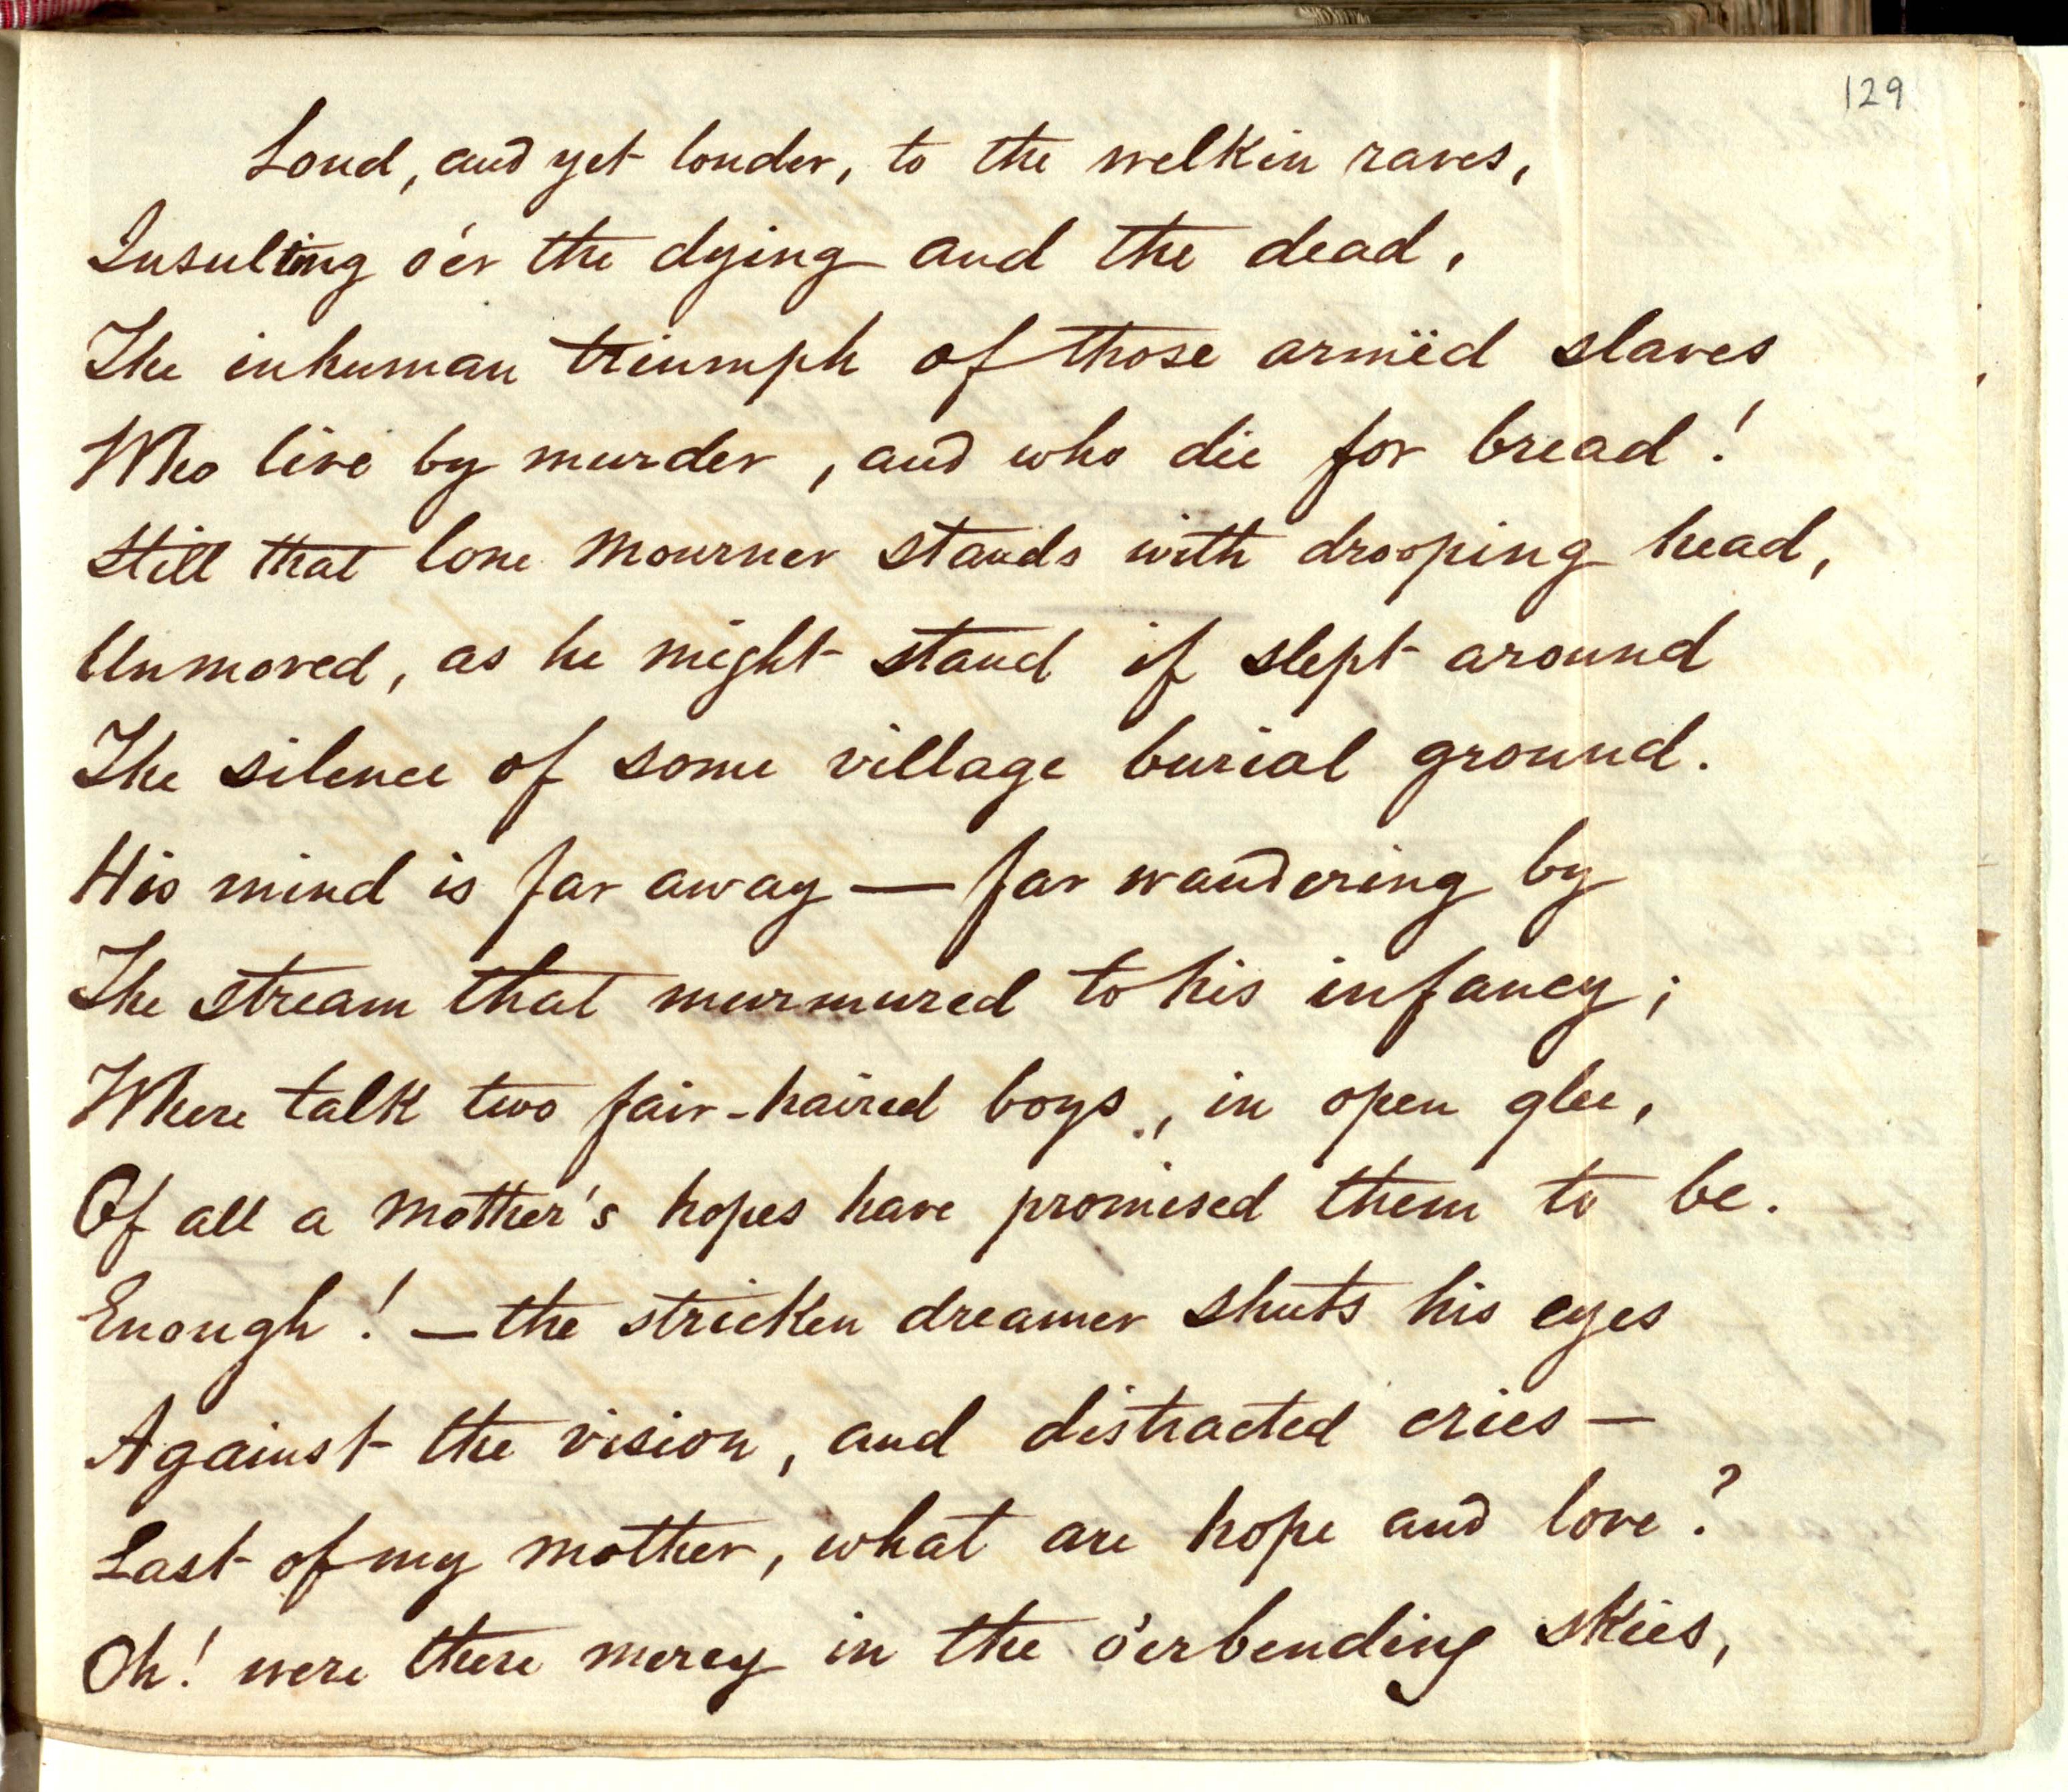 129
Loud, and yet louder, to the welkin raves,
Insulting o'er the dying and the dead,
The inhuman triumph of those armëd slaves
Who live by murder, and who die for bread!
Still that lone mourner stands with drooping head,
Unmoved, as he might stand if slept around
The silence of some village burial ground.
His mind is far away — far wandering by
The stream that murmured to his infancy;
Where talk two fair-haired boys, in open glee,
Of all a mother's hopes have promised them to be.
Enough! — the stricken dreamer shuts his eyes
Against the vision, and distracted cries —
Last of my mother, what are hope and love?
Oh! were there mercy in the o'erbending skies,